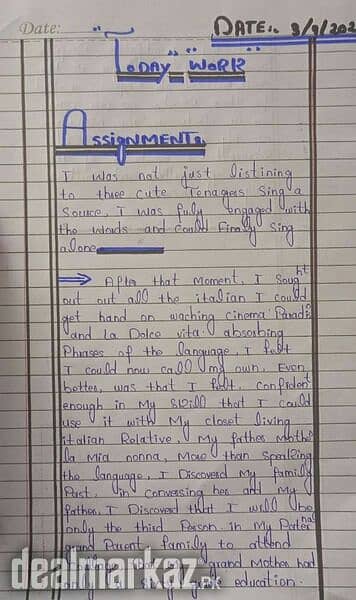 Date:
DATE:. 3/9/202
"Today" "Work"
Assignment:
I was not just listining
to three cute Tenagers Sing a
Source, I was fuly engaged with
the words and could Finaly Sing
alone
⇒ After that Moment, I Sought
out out all the italian I could
get hand on waching cinema Paradi
and La Dolce vita absorbing
Phrases of the language, I felt
I could now call my own. Even
better, was that I felt. confident
enough in My Skill that I could
use it with My closet living
italian Relative, My father Mothe
la Mia nonna, More than Speaking
the language, I Discoverd My family
Past, in conversing her and My
father, I Discoverd that I will be
only the third Person in My Pater nal
grand Parent family to attend
grand Mother had
education.
dealmarkaz.pk